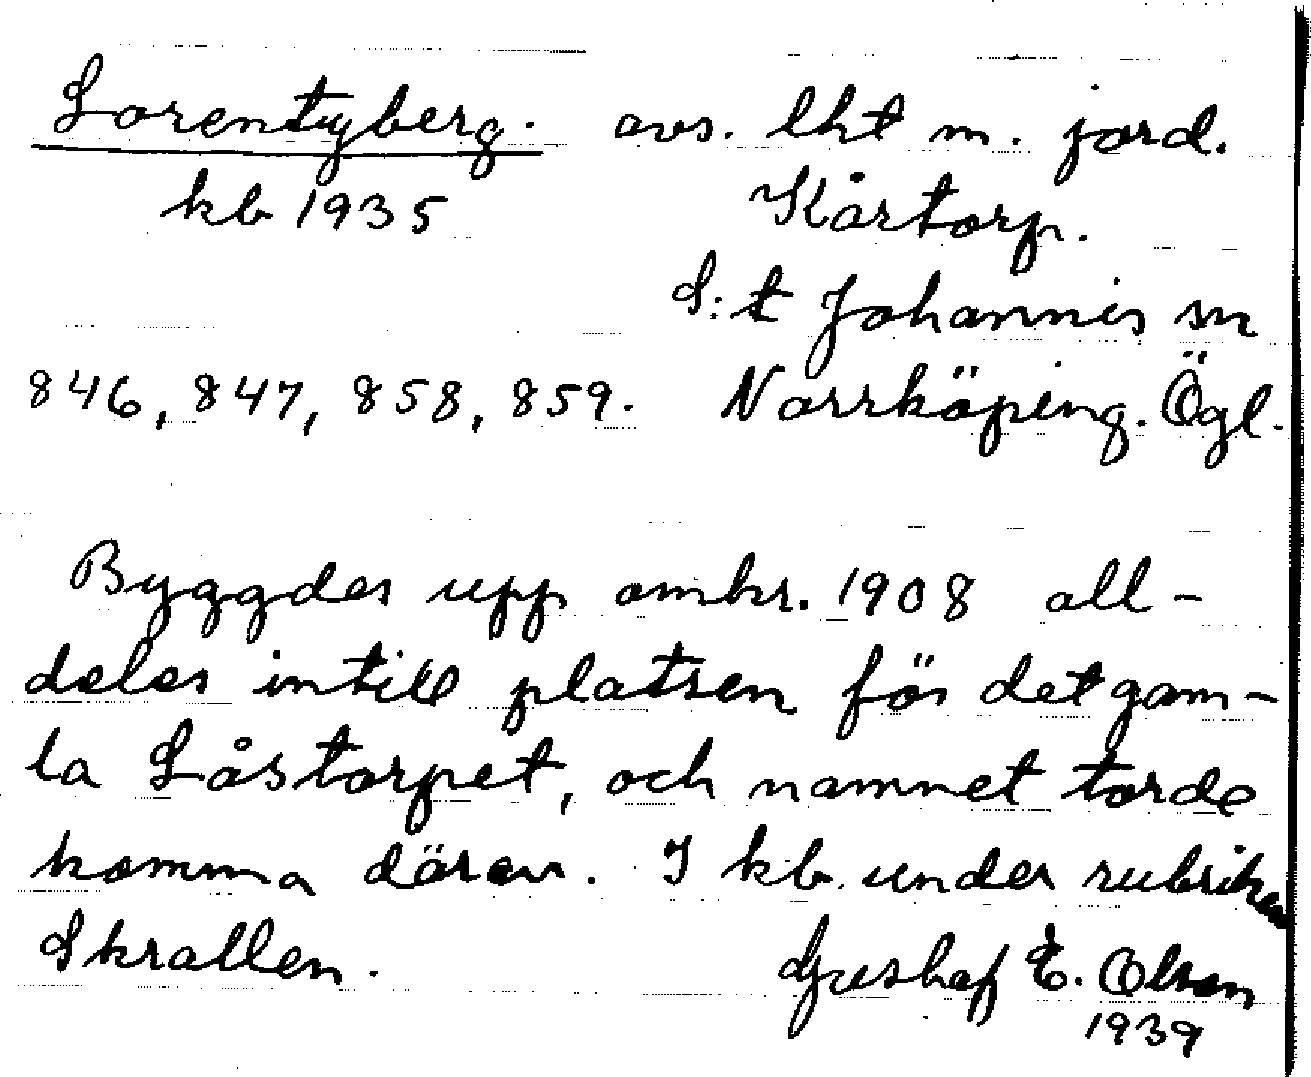 Lorentyberg. avs. lht m. jord.
kb 1935 Kårtorp.
S:t Johannis sn
846, 847, 858, 859. Norrköping. Ögl.
Byggdes upp omkr. 1908 all-
deles intill platsen för det gam-
la Låstorpet, och namnet torde
komma därav. I kb. under rubriken
Skrallen. Gustaf E. Olson
1939